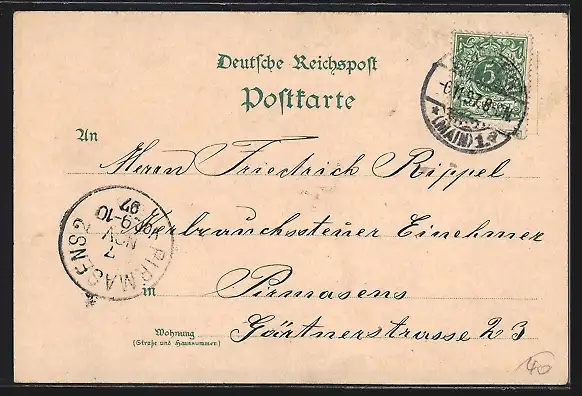 Deutsche Reichspost
Postkarte
5
-6.11.97. 8-
* (MAIN) 1. *
An
Herrn Friedrich Rippel
Verbrauchssteuer Einehmer
PIRMASENS 2
7
NOV
9-10
97
in Pirmasens
Wohnung Gärtnerstrasse 23
(Straße und Hausnummer)
40